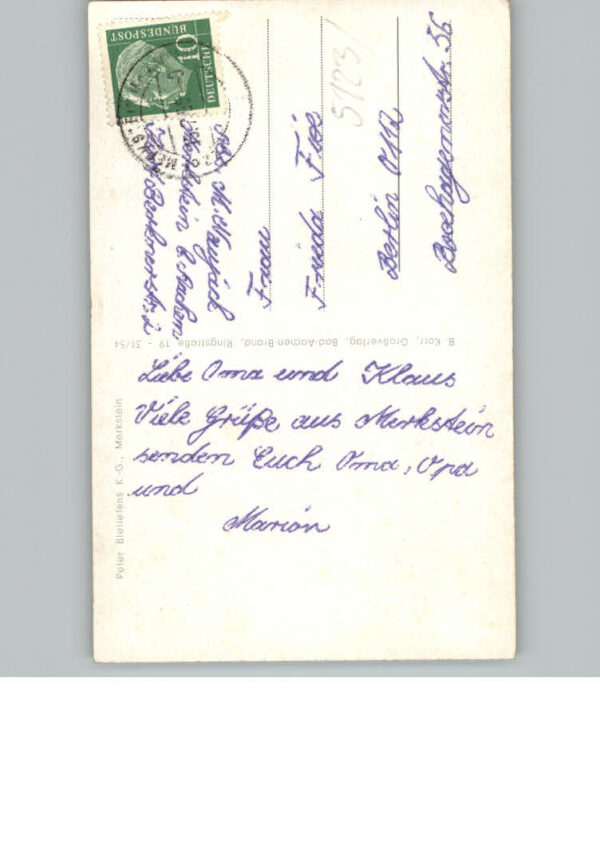 Liebe Oma und Klaus
Viele Grüße aus Merkstein
senden Euch Oma, Opa
und
Marion
Frau
Frieda
Berlin O112
Boxhagenerstr. 56
Abs. M.
Merkstein b. Aachen
5123
10
DEUTSCHE
BUNDESPOST
B. Korr, Großverlag, Bad-Aachen-Brand, Ringstraße 19 - 31/54
Peter Bleilefens K.-G., Merkstein